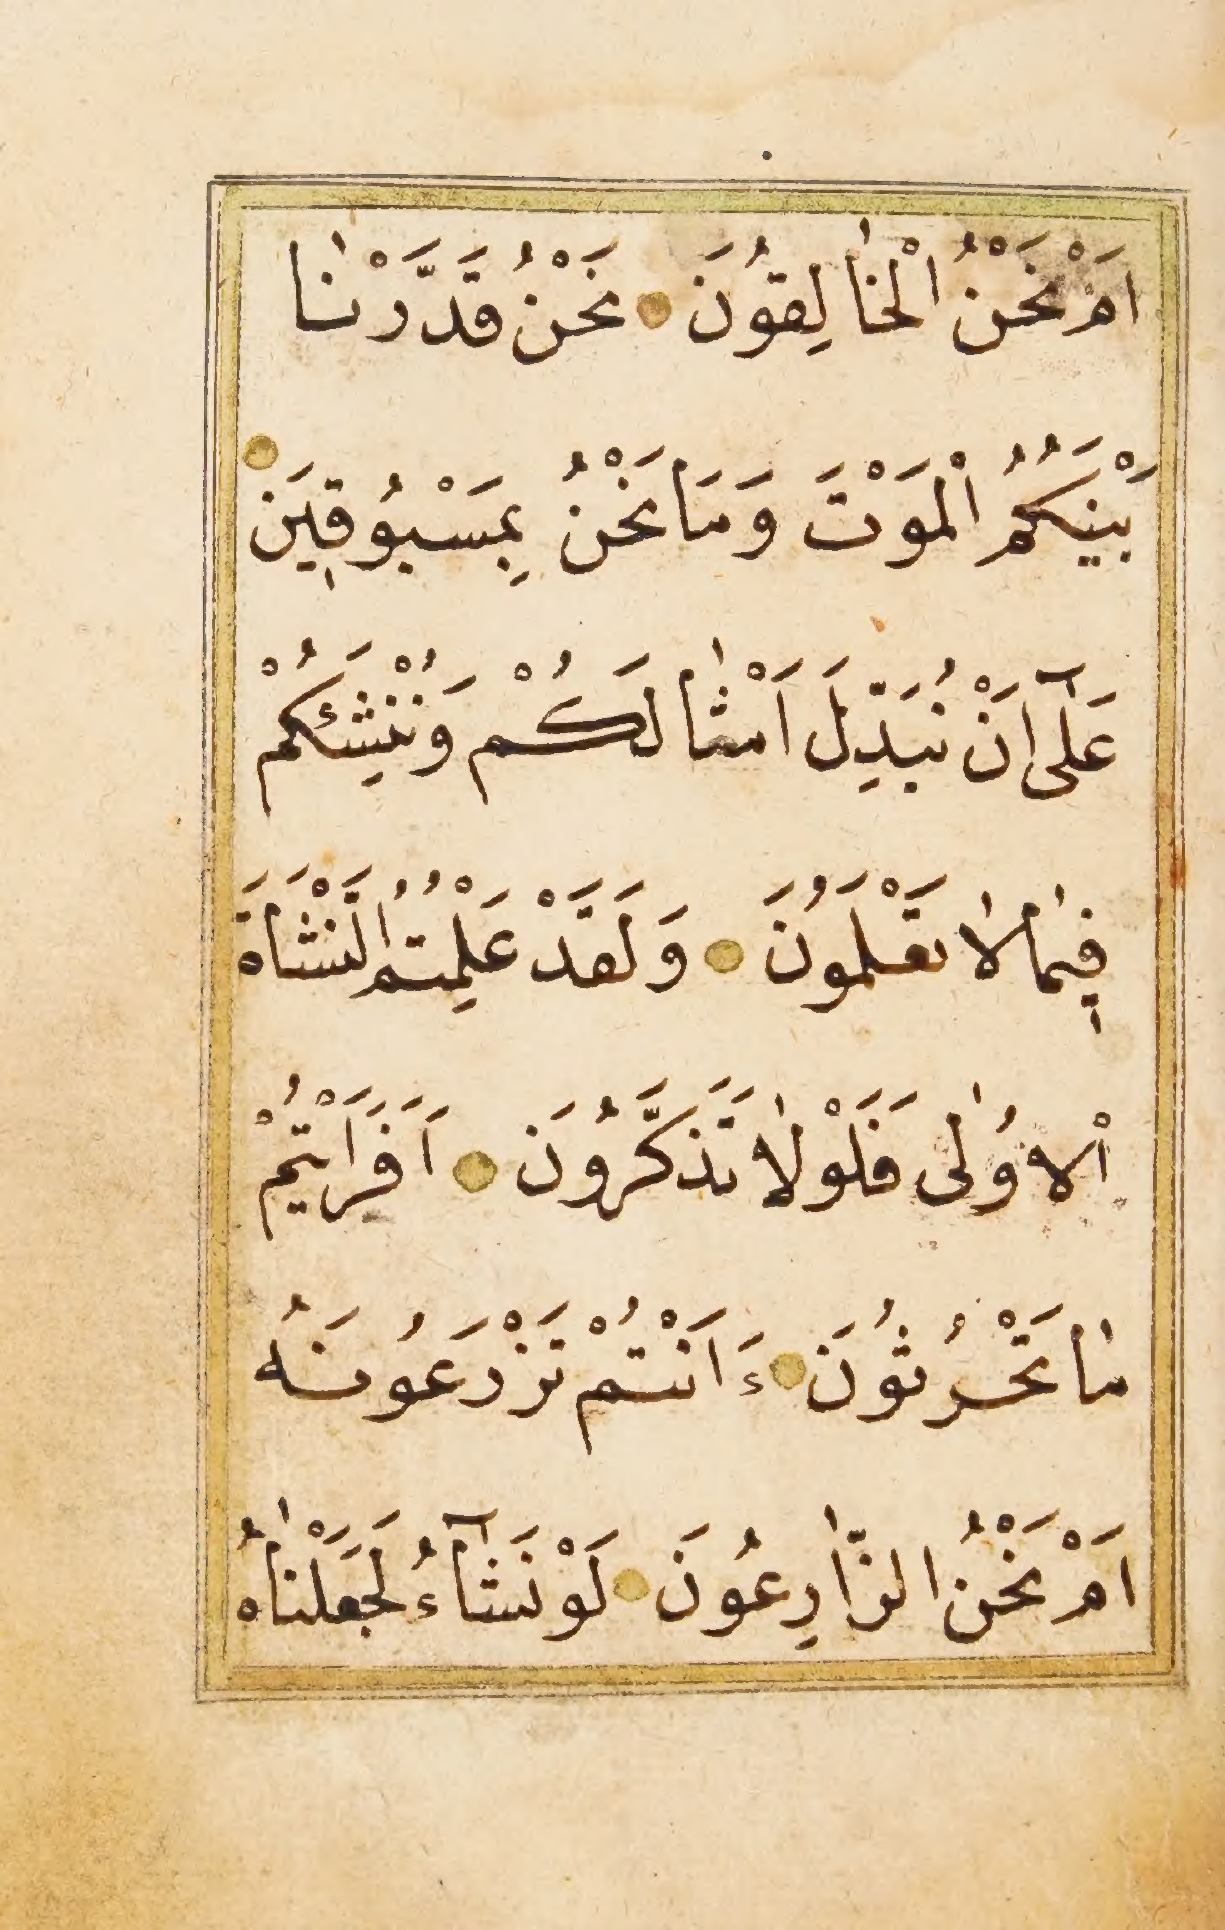 اَمْ نَحْنُ اْلخٰالِقُونَ نَحْنُ قَدَّرْنٰا
بَيْنَكُمُ اْلمَوْتَ وَمَا نَحْنُ بِمَسْبُوقٖينَ
عَلٰٓى اَنْ نُبَدِّلَ اَمْثٰالَكُمْ وَنُنْشِئَكُمْ
فٖيمٰا لٰا تَعْلَمُونَ وَلَقَدْ عَلِمْتُمُ النَّشْاَةَ
اْلاُولٰى فَلَوْلٰا تَذَكَّرُونَ اَفَرَاَيْتُمْ
مٰا تَحْرُثُونَ ءَاَنْتُمْ تَزْرَعُونَهُ
اَمْ نَحْنُ الزّٰارِعُونَ لَوْ نَشٰٓاءُ لَجَعَلْنٰاهُ